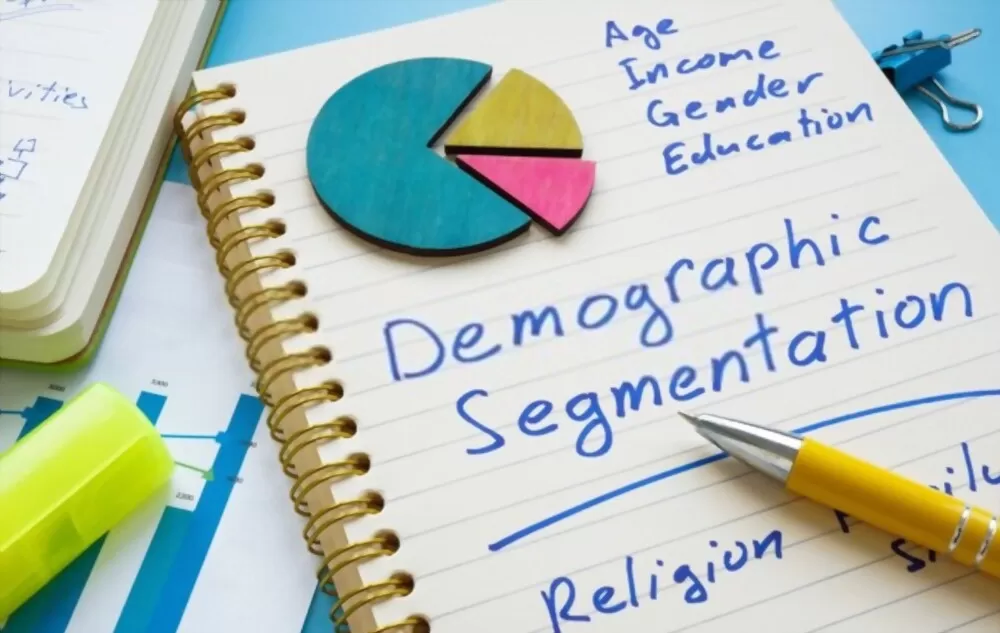 Age
Income
Gender
Education
Demographic
Segmentation
Religion